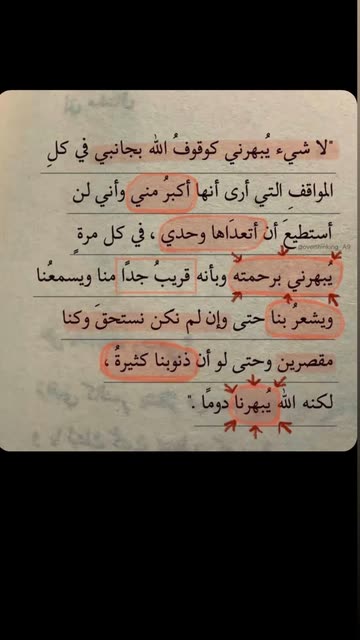 "لا شيء يُبهرني كوقوفُ الله بجانبي في كلِ
المواقفِ التي أرى أنها أكبرُ مني وأني لن
أستطيعَ أن أتعدَاها وحدي ، في كل مرةٍ
يُبهرني برحمته وبأنه قريبُ جدًا منا ويسمعنُا
ويشعرُ بنا حتى وإن لم نكن نستحقَ وكنا
مقصرين وحتى لو أن ذنوبنا كثيرةُ ،
لكنه الله يُبهرنا دومًا ."